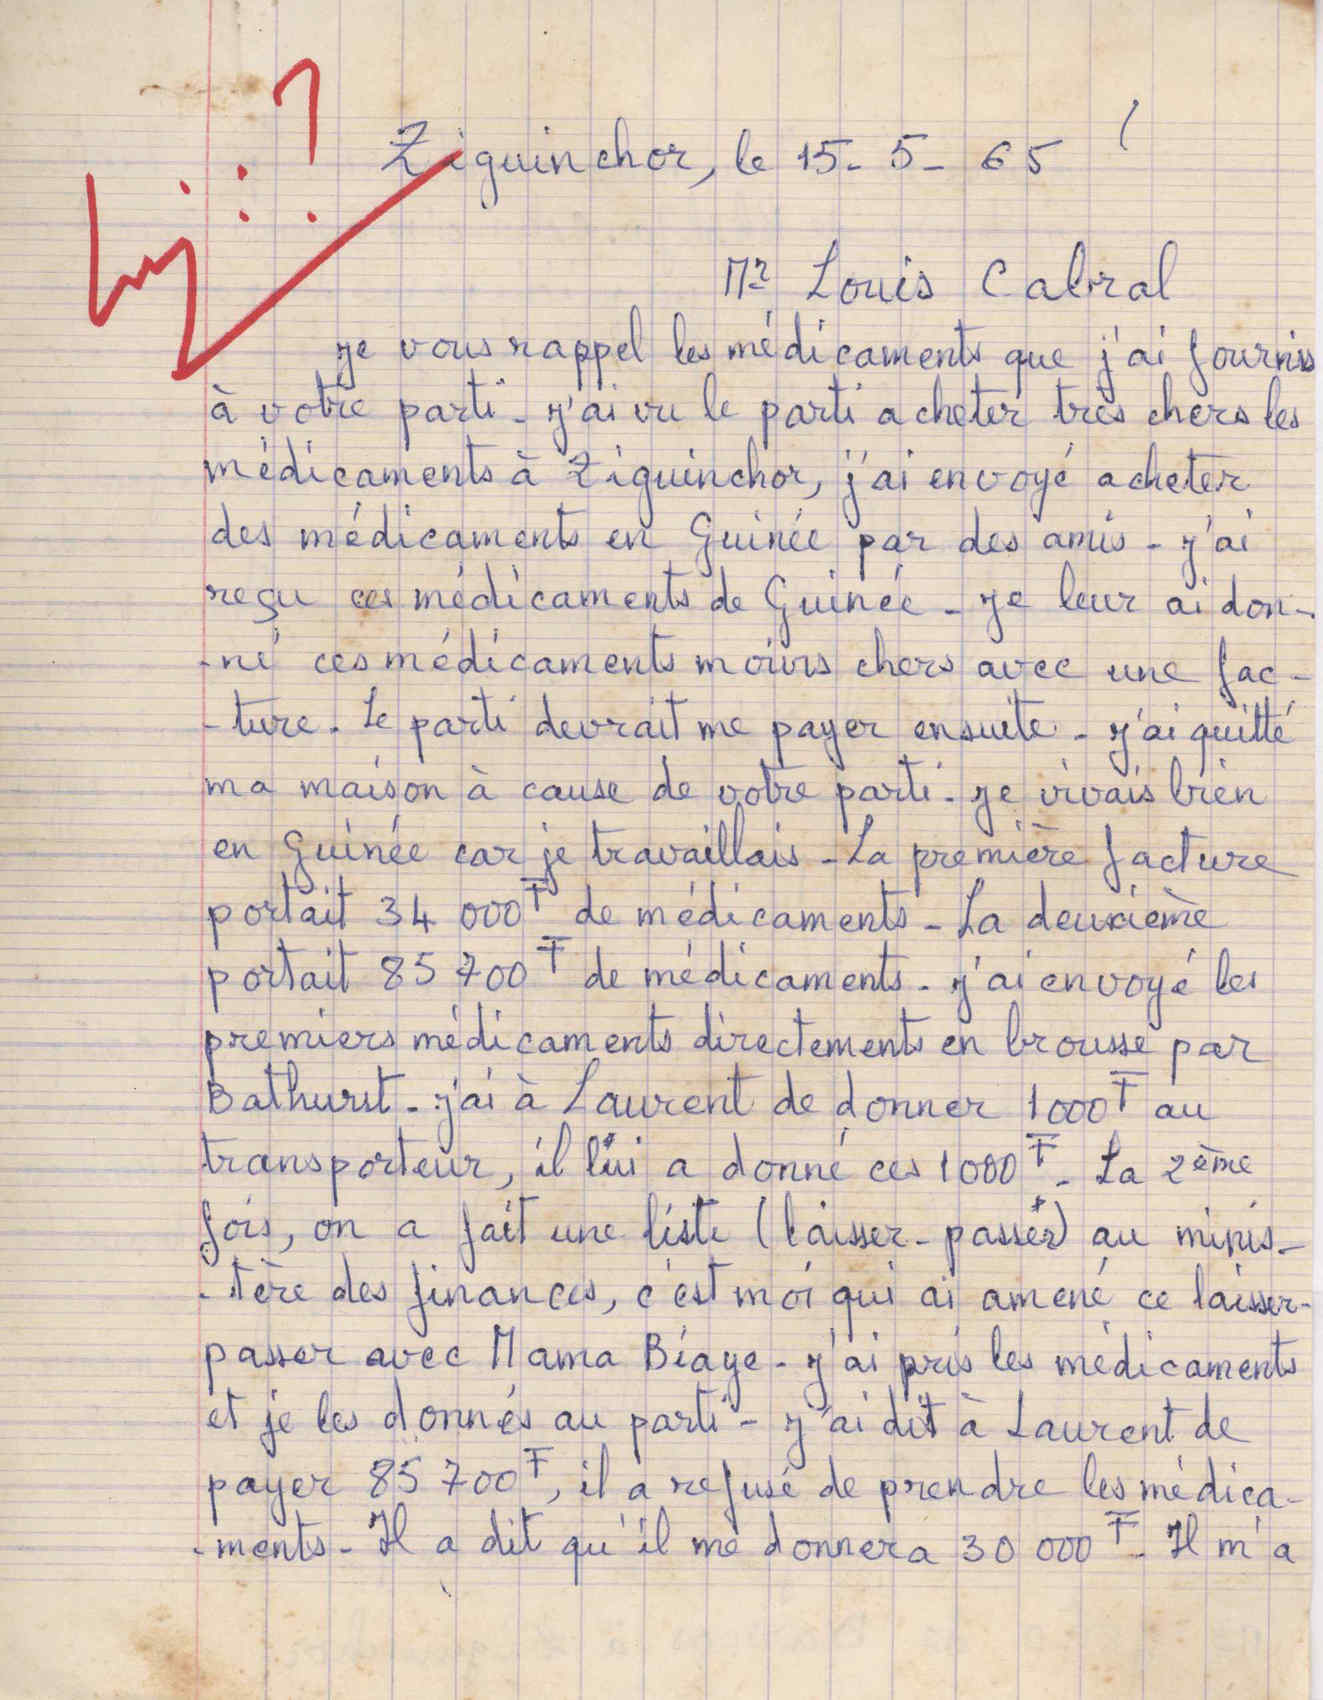 Ziguinchor, le 15-5-65
Mr Louis Cabral
je vous rappel les médicaments que j'ai fournis
à votre parti - j'ai vu le parti acheter très chers les
médicaments à Ziguinchor, j'ai envoyé acheter
des médicaments en Guinée par des amis - j'ai
reçu ces médicaments de Guinée - je leur ai don-
-né ces médicaments moins chers avec une fac-
-ture. Le parti devrait me payer ensuite - j'ai quitté
ma maison à cause de votre parti - je vivais bien
en Guinée car je travaillais - La première facture
portait 34 000F de médicaments - La deuxième
portait 85 700F de médicaments - j'ai envoyé les
premiers médicaments directements en brousse par
Bathurst - j'ai à Laurent de donner 1000F au
transporteur, il lui a donné ces 1000F - La 2ème
fois, on a fait une liste (laisser-passer) au minis-
-tère des finances, c'est moi qui ai amené ce laisser-
passer avec Mama Biaye - j'ai pris les médicaments
et je les donnés au parti - j'ai dit à Laurent de
payer 85 700F, il a refusé de prendre les médica-
-ments - Il a dit qu'il me donnera 30 000F - Il m'a